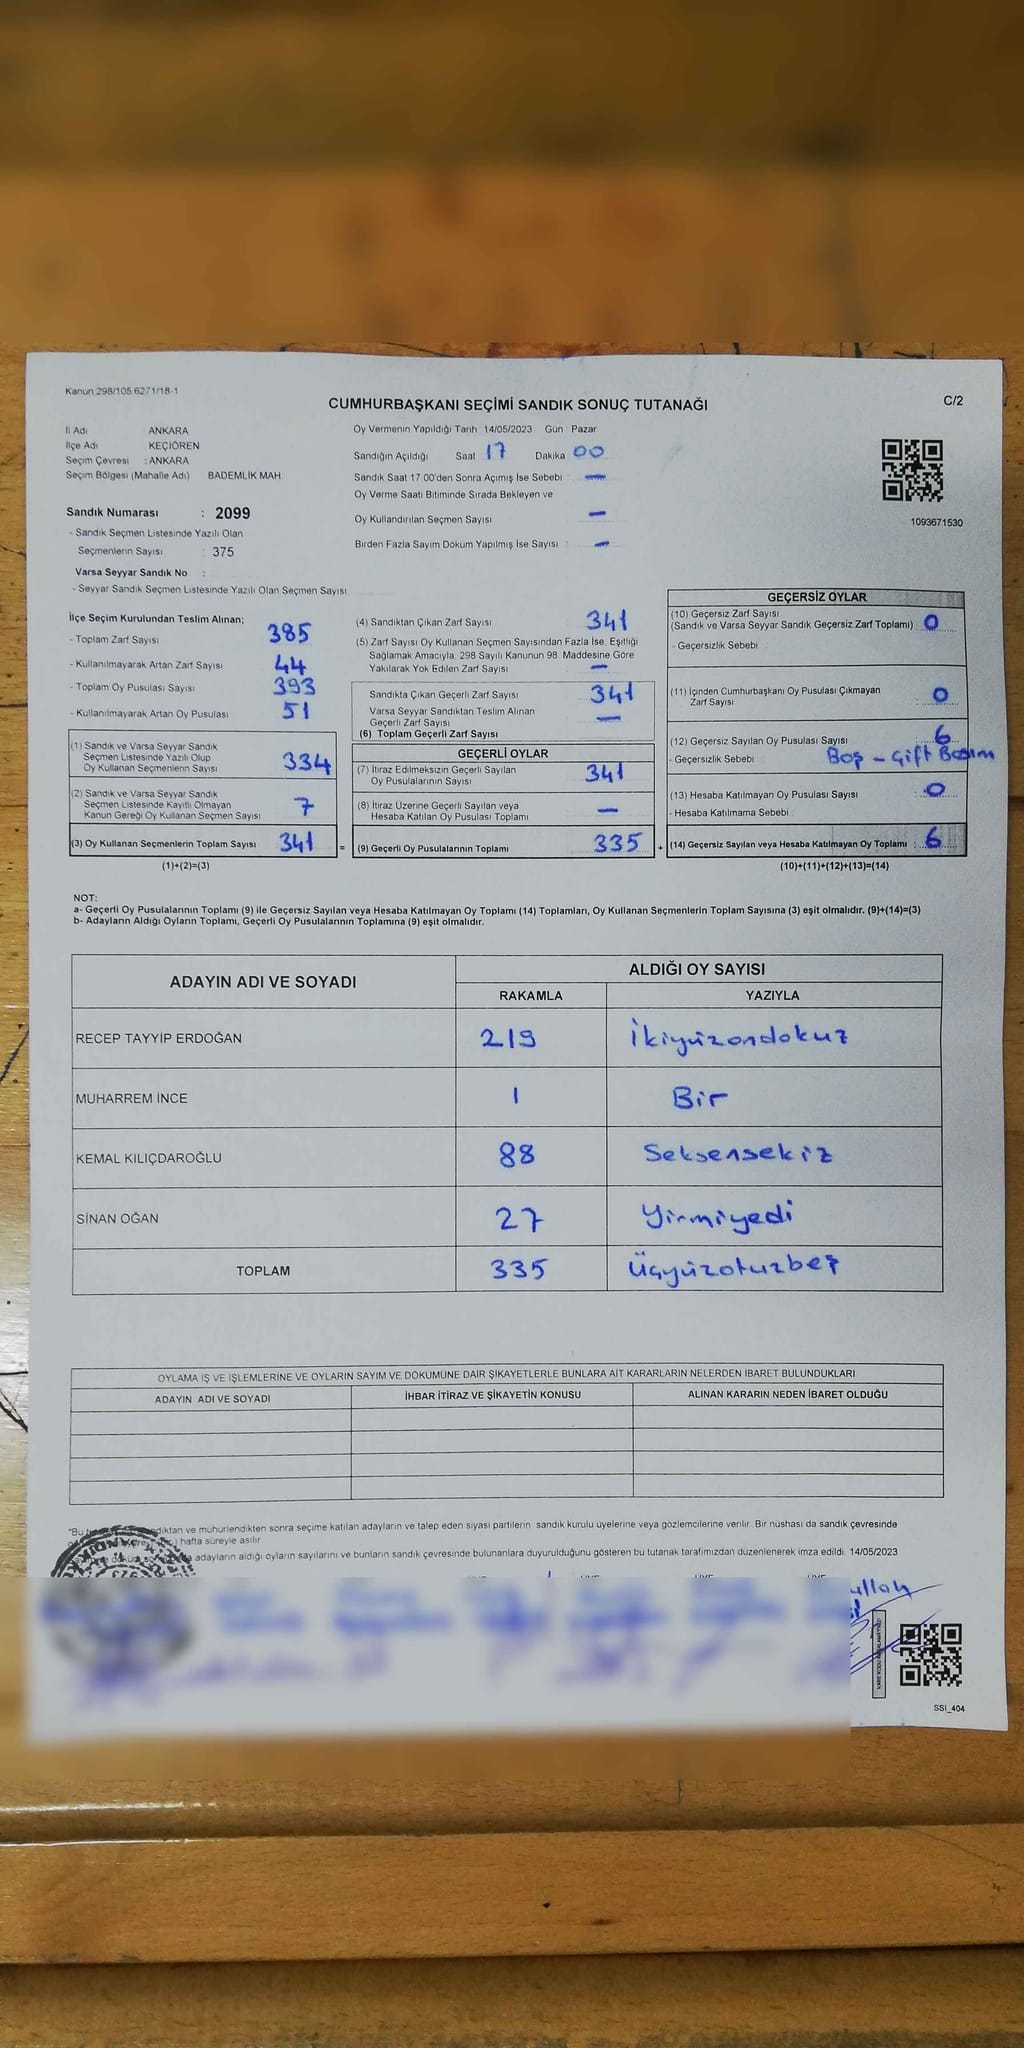 Kanun 298/105 6271/18-1
CUMHURBAŞKANI SEÇİMİ SANDIK SONUÇ TUTANAĞI
C/2
İl Adı ANKARA
İlçe Adı KEÇİÖREN
Seçim Çevresi : ANKARA
Seçim Bölgesi (Mahalle Adı) BADEMLİK MAH
Sandık Numarası : 2099
- Sandık Seçmen Listesinde Yazılı Olan
Seçmenlerin Sayısı : 375
Varsa Seyyar Sandık No :
- Seyyar Sandık Seçmen Listesinde Yazılı Olan Seçmen Sayısı
Oy Vermenin Yapıldığı Tarih 14/05/2023 Gün Pazar
Sandığın Açıldığı Saat 17 Dakika 00
Sandık Saat 17.00'den Sonra Açımış İse Sebebi : —
Oy Verme Saati Bitiminde Sırada Bekleyen ve
Oy Kullandırılan Seçmen Sayısı —
Birden Fazla Sayım Döküm Yapılmış İse Sayısı : —
1093671530
İlçe Seçim Kurulundan Teslim Alınan;
- Toplam Zarf Sayısı 385
- Kullanılmayarak Artan Zarf Sayısı 44
- Toplam Oy Pusulası Sayısı 393
- Kullanılmayarak Artan Oy Pusulası 51
(1) Sandık ve Varsa Seyyar Sandık
Seçmen Listesinde Yazılı Olup
Oy Kullanan Seçmenlerin Sayısı 334
(2) Sandık ve Varsa Seyyar Sandık
Seçmen Listesinde Kayıtlı Olmayan
Kanun Gereği Oy Kullanan Seçmen Sayısı 7
(3) Oy Kullanan Seçmenlerin Toplam Sayısı 341
(1)+(2)=(3)
(4) Sandıktan Çıkan Zarf Sayısı 341
(5) Zarf Sayısı Oy Kullanan Seçmen Sayısından Fazla İse, Eşitliği
Sağlamak Amacıyla, 298 Sayılı Kanunun 98. Maddesine Göre
Yakılarak Yok Edilen Zarf Sayısı —
Sandıkta Çıkan Geçerli Zarf Sayısı 341
Varsa Seyyar Sandıktan Teslim Alınan
Geçerli Zarf Sayısı —
(6) Toplam Geçerli Zarf Sayısı
GEÇERLİ OYLAR
(7) İtiraz Edilmeksizin Geçerli Sayılan
Oy Pusulalarının Sayısı 341
(8) İtiraz Üzerine Geçerli Sayılan veya
Hesaba Katılan Oy Pusulası Toplamı —
= (9) Geçerli Oy Pusulalarının Toplamı 335
GEÇERSİZ OYLAR
(10) Geçersiz Zarf Sayısı
(Sandık ve Varsa Seyyar Sandık Geçersiz Zarf Toplamı) : 0
- Geçersizlik Sebebi
(11) İçinden Cumhurbaşkanı Oy Pusulası Çıkmayan
Zarf Sayısı 0
(12) Geçersiz Sayılan Oy Pusulası Sayısı 6
- Geçersizlik Sebebi Boş - Çift Basım
(13) Hesaba Katılmayan Oy Pusulası Sayısı 0
- Hesaba Katılmama Sebebi
+ (14) Geçersiz Sayılan veya Hesaba Katılmayan Oy Toplamı : 6
(10)+(11)+(12)+(13)=(14)
NOT:
a- Geçerli Oy Pusulalarının Toplamı (9) ile Geçersiz Sayılan veya Hesaba Katılmayan Oy Toplamı (14) Toplamları, Oy Kullanan Seçmenlerin Toplam Sayısına (3) eşit olmalıdır. (9)+(14)=(3)
b- Adayların Aldığı Oyların Toplamı, Geçerli Oy Pusulalarının Toplamına (9) eşit olmalıdır.
ADAYIN ADI VE SOYADI ALDIĞI OY SAYISI
RAKAMLA YAZIYLA
RECEP TAYYİP ERDOĞAN 219 İkiyüzondokuz
MUHARREM İNCE 1 Bir
KEMAL KILIÇDAROĞLU 88 Seksensekiz
SİNAN OĞAN 27 Yirmiyedi
TOPLAM 335 Üçyüzotuzbeş
OYLAMA İŞ VE İŞLEMLERİNE VE OYLARIN SAYIM VE DÖKÜMÜNE DAİR ŞİKAYETLERLE BUNLARA AİT KARARLARIN NELERDEN İBARET BULUNDUKLARI
ADAYIN ADI VE SOYADI İHBAR İTİRAZ VE ŞİKAYETİN KONUSU ALINAN KARARIN NEDEN İBARET OLDUĞU
"Bu ve mühürlendikten sonra seçime katılan adayların ve talep eden siyasi partilerin sandık kurulu üyelerine veya gözlemcilerine verilir. Bir nüshası da sandık çevresinde
hafta süreyle asılır
adayların aldığı oyların sayılarını ve bunların sandık çevresinde bulunanlara duyurulduğunu gösteren bu tutanak tarafımızdan düzenlenerek imza edildi. 14/05/2023
SSI_404